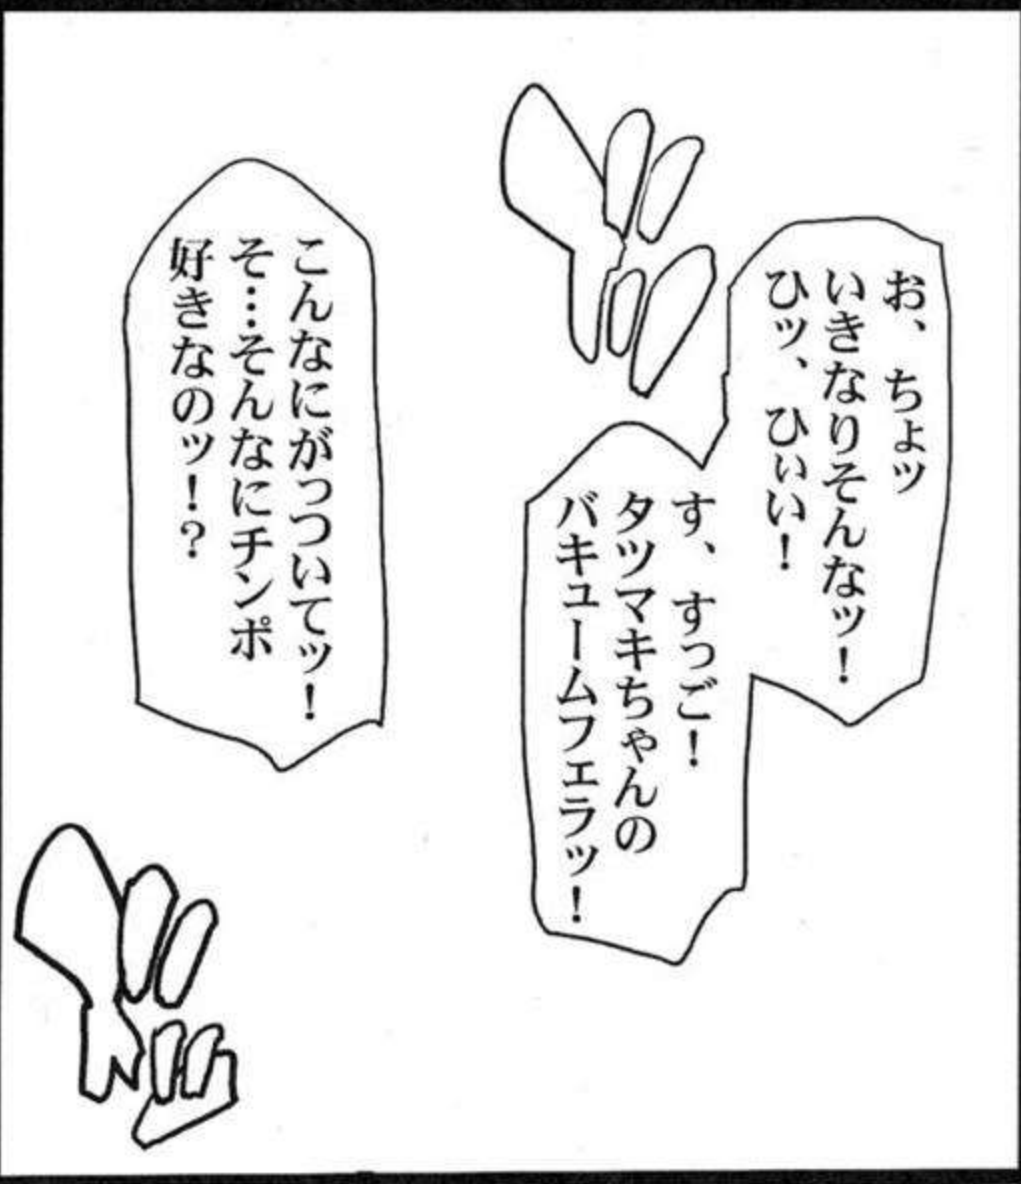 お、ちょッ
いきなりそんなッ！
ひッ、ひぃい！
す、すっご！
タツマキちゃんの
バキュームフェラッ！
こんなにがっついてッ！
そ…そんなにチンポ
好きなのッ！？